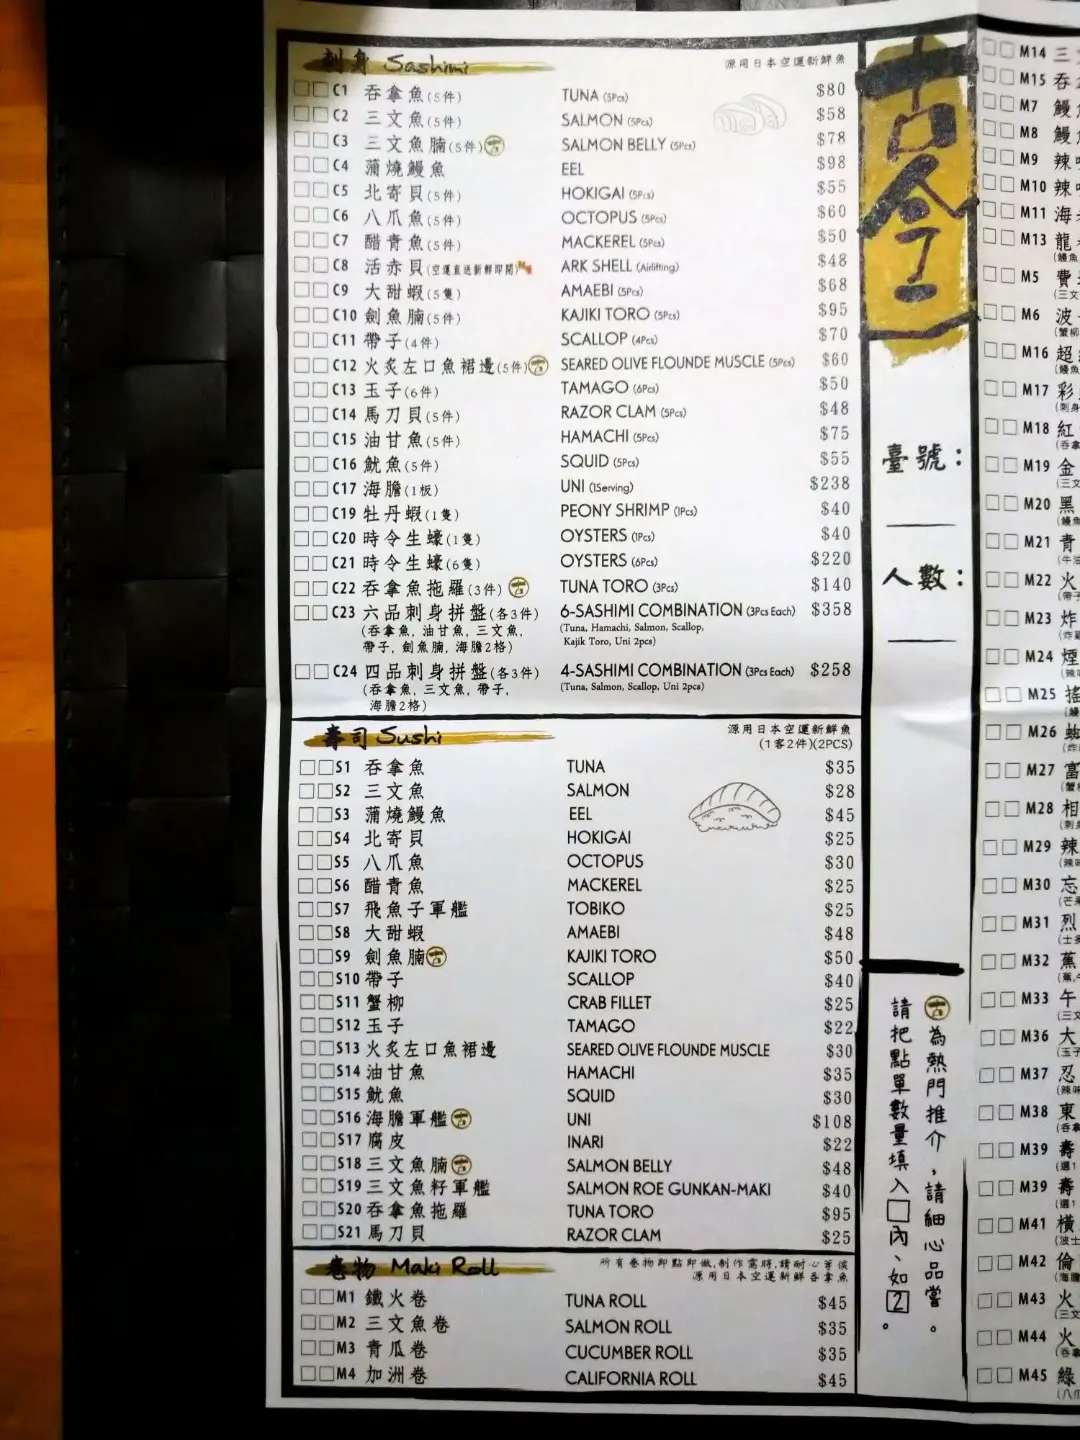 刺身 Sashimi
源用日本空運新鮮魚
C1 吞拿魚(5件) TUNA (5Pcs) $80
C2 三文魚(5件) SALMON (5Pcs) $58
C3 三文魚腩(5件) 古 SALMON BELLY (5Pcs) $78
C4 蒲燒鰻魚 EEL $98
C5 北寄貝(5件) HOKIGAI (5Pcs) $55
C6 八爪魚(5件) OCTOPUS (5Pcs) $60
C7 醋青魚(5件) MACKEREL (5Pcs) $50
C8 活赤貝(空運直送新鮮即開) ARK SHELL (Airlifting) $48
C9 大甜蝦(5隻) AMAEBI (5Pcs) $68
C10 劍魚腩(5件) KAJIKI TORO (5Pcs) $95
C11 帶子(4件) SCALLOP (4Pcs) $70
C12 火炙左口魚裙邊(5件) 古 SEARED OLIVE FLOUNDE MUSCLE (5Pcs) $60
C13 玉子(6件) TAMAGO (6Pcs) $50
C14 馬刀貝(5件) RAZOR CLAM (5Pcs) $48
C15 油甘魚(5件) HAMACHI (5Pcs) $75
C16 魷魚(5件) SQUID (5Pcs) $55
C17 海膽(1板) UNI (1Serving) $238
C19 牡丹蝦(1隻) PEONY SHRIMP (1Pcs) $40
C20 時令生蠔(1隻) OYSTERS (1Pcs) $40
C21 時令生蠔(6隻) OYSTERS (6Pcs) $220
C22 吞拿魚拖羅(3件) 古 TUNA TORO (3Pcs) $140
C23 六品刺身拼盤(各3件) 6-SASHIMI COMBINATION (3Pcs Each) $358
(吞拿魚, 油甘魚, 三文魚, (Tuna, Hamachi, Salmon, Scallop,
帶子, 劍魚腩, 海膽2格) Kajik Toro, Uni 2pcs)
C24 四品刺身拼盤(各3件) 4-SASHIMI COMBINATION (3Pcs Each) $258
(吞拿魚, 三文魚, 帶子, (Tuna, Salmon, Scallop, Uni 2pcs)
海膽2格)
壽司 Sushi
源用日本空運新鮮魚
(1客2件)(2PCS)
S1 吞拿魚 TUNA $35
S2 三文魚 SALMON $28
S3 蒲燒鰻魚 EEL $45
S4 北寄貝 HOKIGAI $25
S5 八爪魚 OCTOPUS $30
S6 醋青魚 MACKEREL $25
S7 飛魚子軍艦 TOBIKO $25
S8 大甜蝦 AMAEBI $48
S9 劍魚腩 古 KAJIKI TORO $50
S10 帶子 SCALLOP $40
S11 蟹柳 CRAB FILLET $25
S12 玉子 TAMAGO $22
S13 火炙左口魚裙邊 SEARED OLIVE FLOUNDE MUSCLE $30
S14 油甘魚 HAMACHI $35
S15 魷魚 SQUID $30
S16 海膽軍艦 古 UNI $108
S17 腐皮 INARI $22
S18 三文魚腩 古 SALMON BELLY $48
S19 三文魚籽軍艦 SALMON ROE GUNKAN-MAKI $40
S20 吞拿魚拖羅 TUNA TORO $95
S21 馬刀貝 RAZOR CLAM $25
卷物 Maki Roll
所有卷物即點即做,制作需時,請耐心等候
源用日本空運新鮮吞拿魚
M1 鐵火卷 TUNA ROLL $45
M2 三文魚卷 SALMON ROLL $35
M3 青瓜卷 CUCUMBER ROLL $35
M4 加洲卷 CALIFORNIA ROLL $45
古今二
臺號：
人數：
古為熱門推介，請細心品嘗。
請把點單數量填入□內、如2。
M14 三
M15 吞
M7 鰻
M8 鰻
M9 辣
M10 辣
M11 海
M13 龍
(鰻魚
M5 費
(三文
M6 波
(蟹柳
M16 超
(鰻魚
M17 彩
(刺身
M18 紅
(吞拿
M19 金
(三文
M20 黑
(鰻魚
M21 青
(牛油
M22 火
(帶子
M23 炸
(炸
M24 煙
(辣
M25 搖
(鰻
M26 蜘
(炸
M27 富
(蟹
M28 相
(刺
M29 辣
M30 忘
(芒果
M31 烈
(士多
M32 蕉
(蕉
M33 午
(三文
M36 大
(玉子
M37 忍
(辣
M38 東
(吞拿
M39 壽
(選1
M39 壽
(選1
M41 橫
(波士
M42 倫
(海膽
M43 火
(三文
M44 火
(吞拿
M45 綠
(八爪